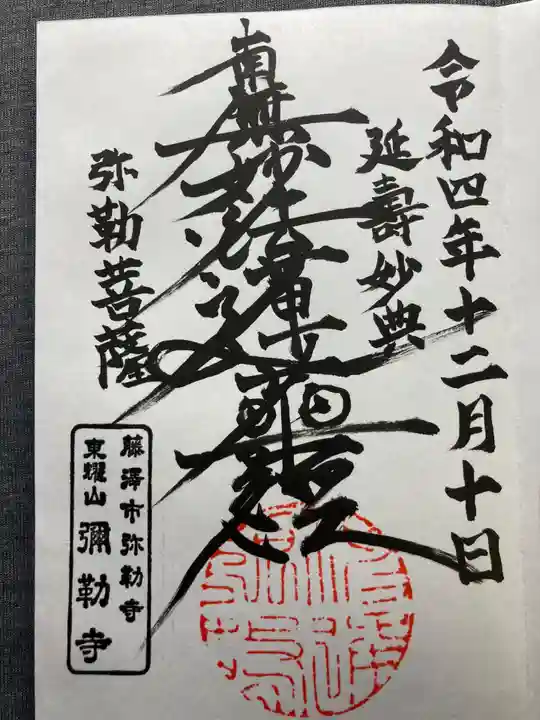 令和四年十二月十日
延壽妙典
南無妙法蓮華經
弥勒菩薩
藤澤市弥勒寺
東耀山 彌勒寺